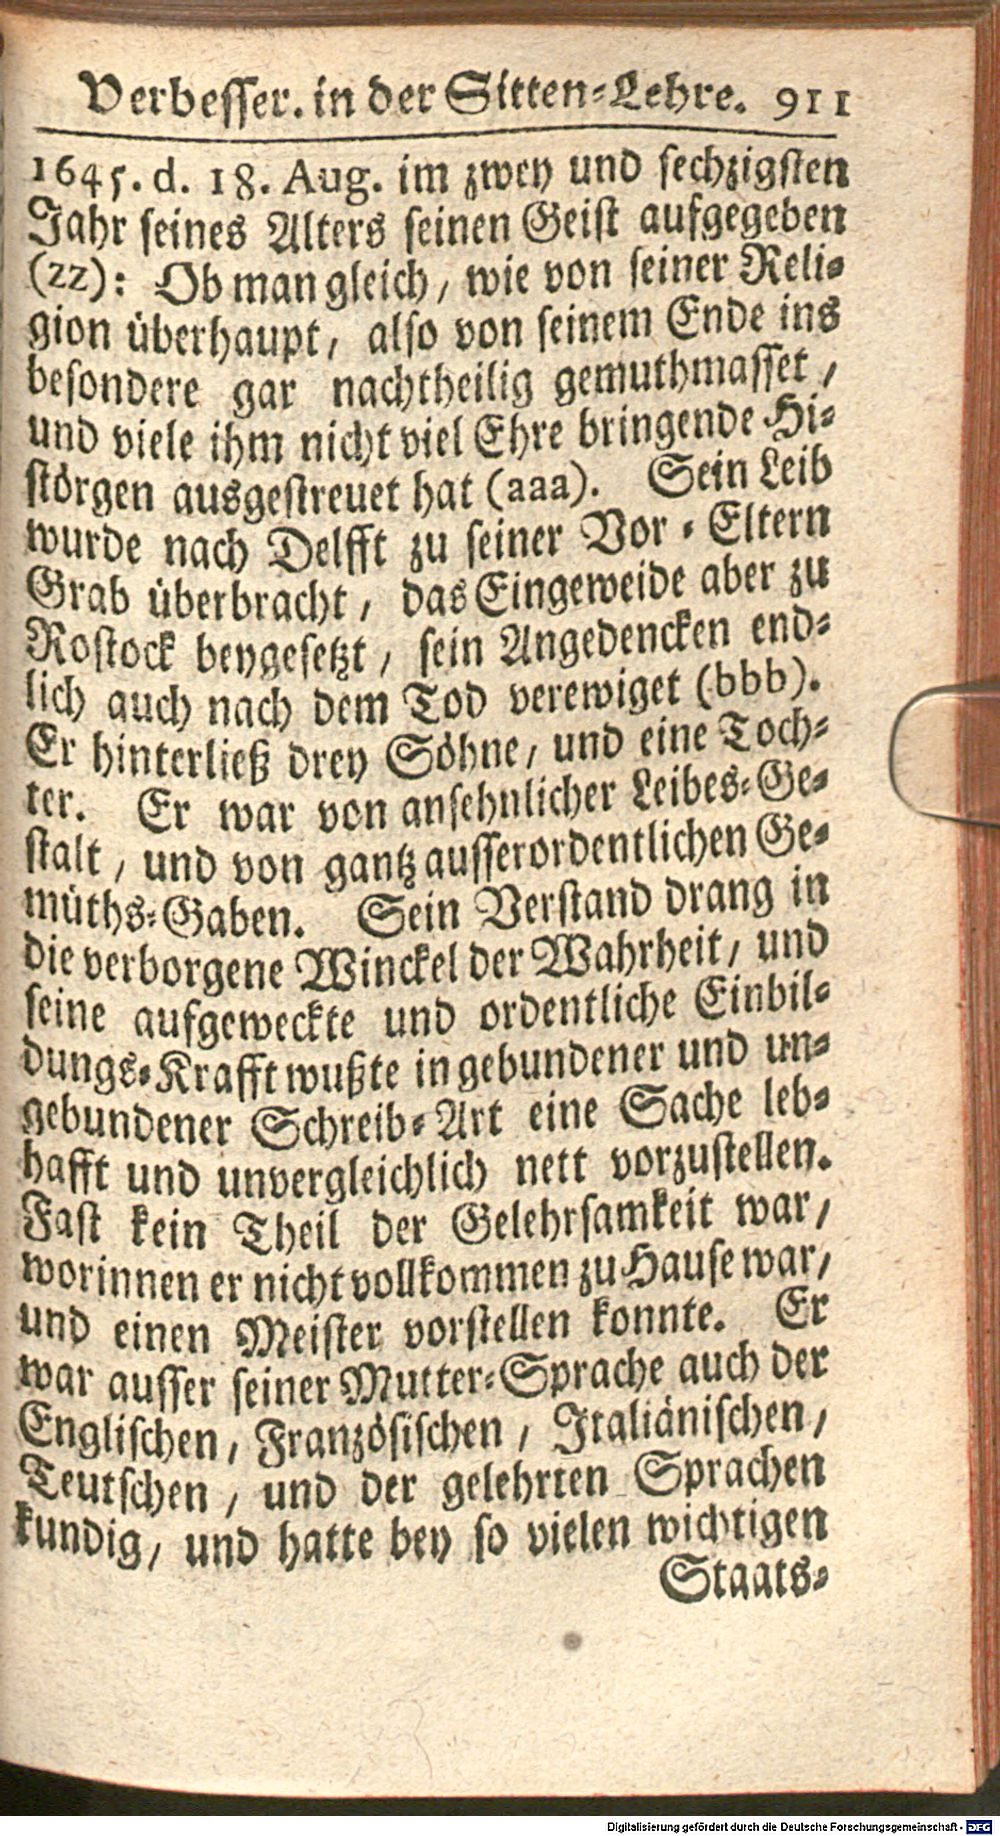 Verbesser. in der Sitten-Lehre. 911
1645. d. 18. Aug. im zwey und sechzigsten
Jahr seines Alters seinen Geist aufgegeben
(zz): Ob man gleich, wie von seiner Reli-
gion überhaupt, also von seinem Ende ins
besondere gar nachtheilig gemuthmasset,
und viele ihm nicht viel Ehre bringende Hi-
störgen ausgestreuet hat (aaa). Sein Leib
wurde nach Delfft zu seiner Vor-Eltern
Grab überbracht, das Eingeweide aber zu
Rostock beygesetzt, sein Angedencken end-
lich auch nach dem Tod verewiget (bbb).
Er hinterließ drey Söhne, und eine Toch-
ter. Er war von ansehnlicher Leibes-Ge-
stalt, und von gantz ausserordentlichen Ge-
müths-Gaben. Sein Verstand drang in
die verborgene Winckel der Wahrheit, und
seine aufgeweckte und ordentliche Einbil-
dungs-Krafft wußte in gebundener und un-
gebundener Schreib-Art eine Sache leb-
hafft und unvergleichlich nett vorzustellen.
Fast kein Theil der Gelehrsamkeit war,
worinnen er nicht vollkommen zu Hause war,
und einen Meister vorstellen konnte. Er
war ausser seiner Mutter-Sprache auch der
Englischen, Französischen, Italiänischen,
Teutschen, und der gelehrten Sprachen
kundig, und hatte bey so vielen wichtigen
Staats-
Digitalisierung gefördert durch die Deutsche Forschungsgemeinschaft - DFG